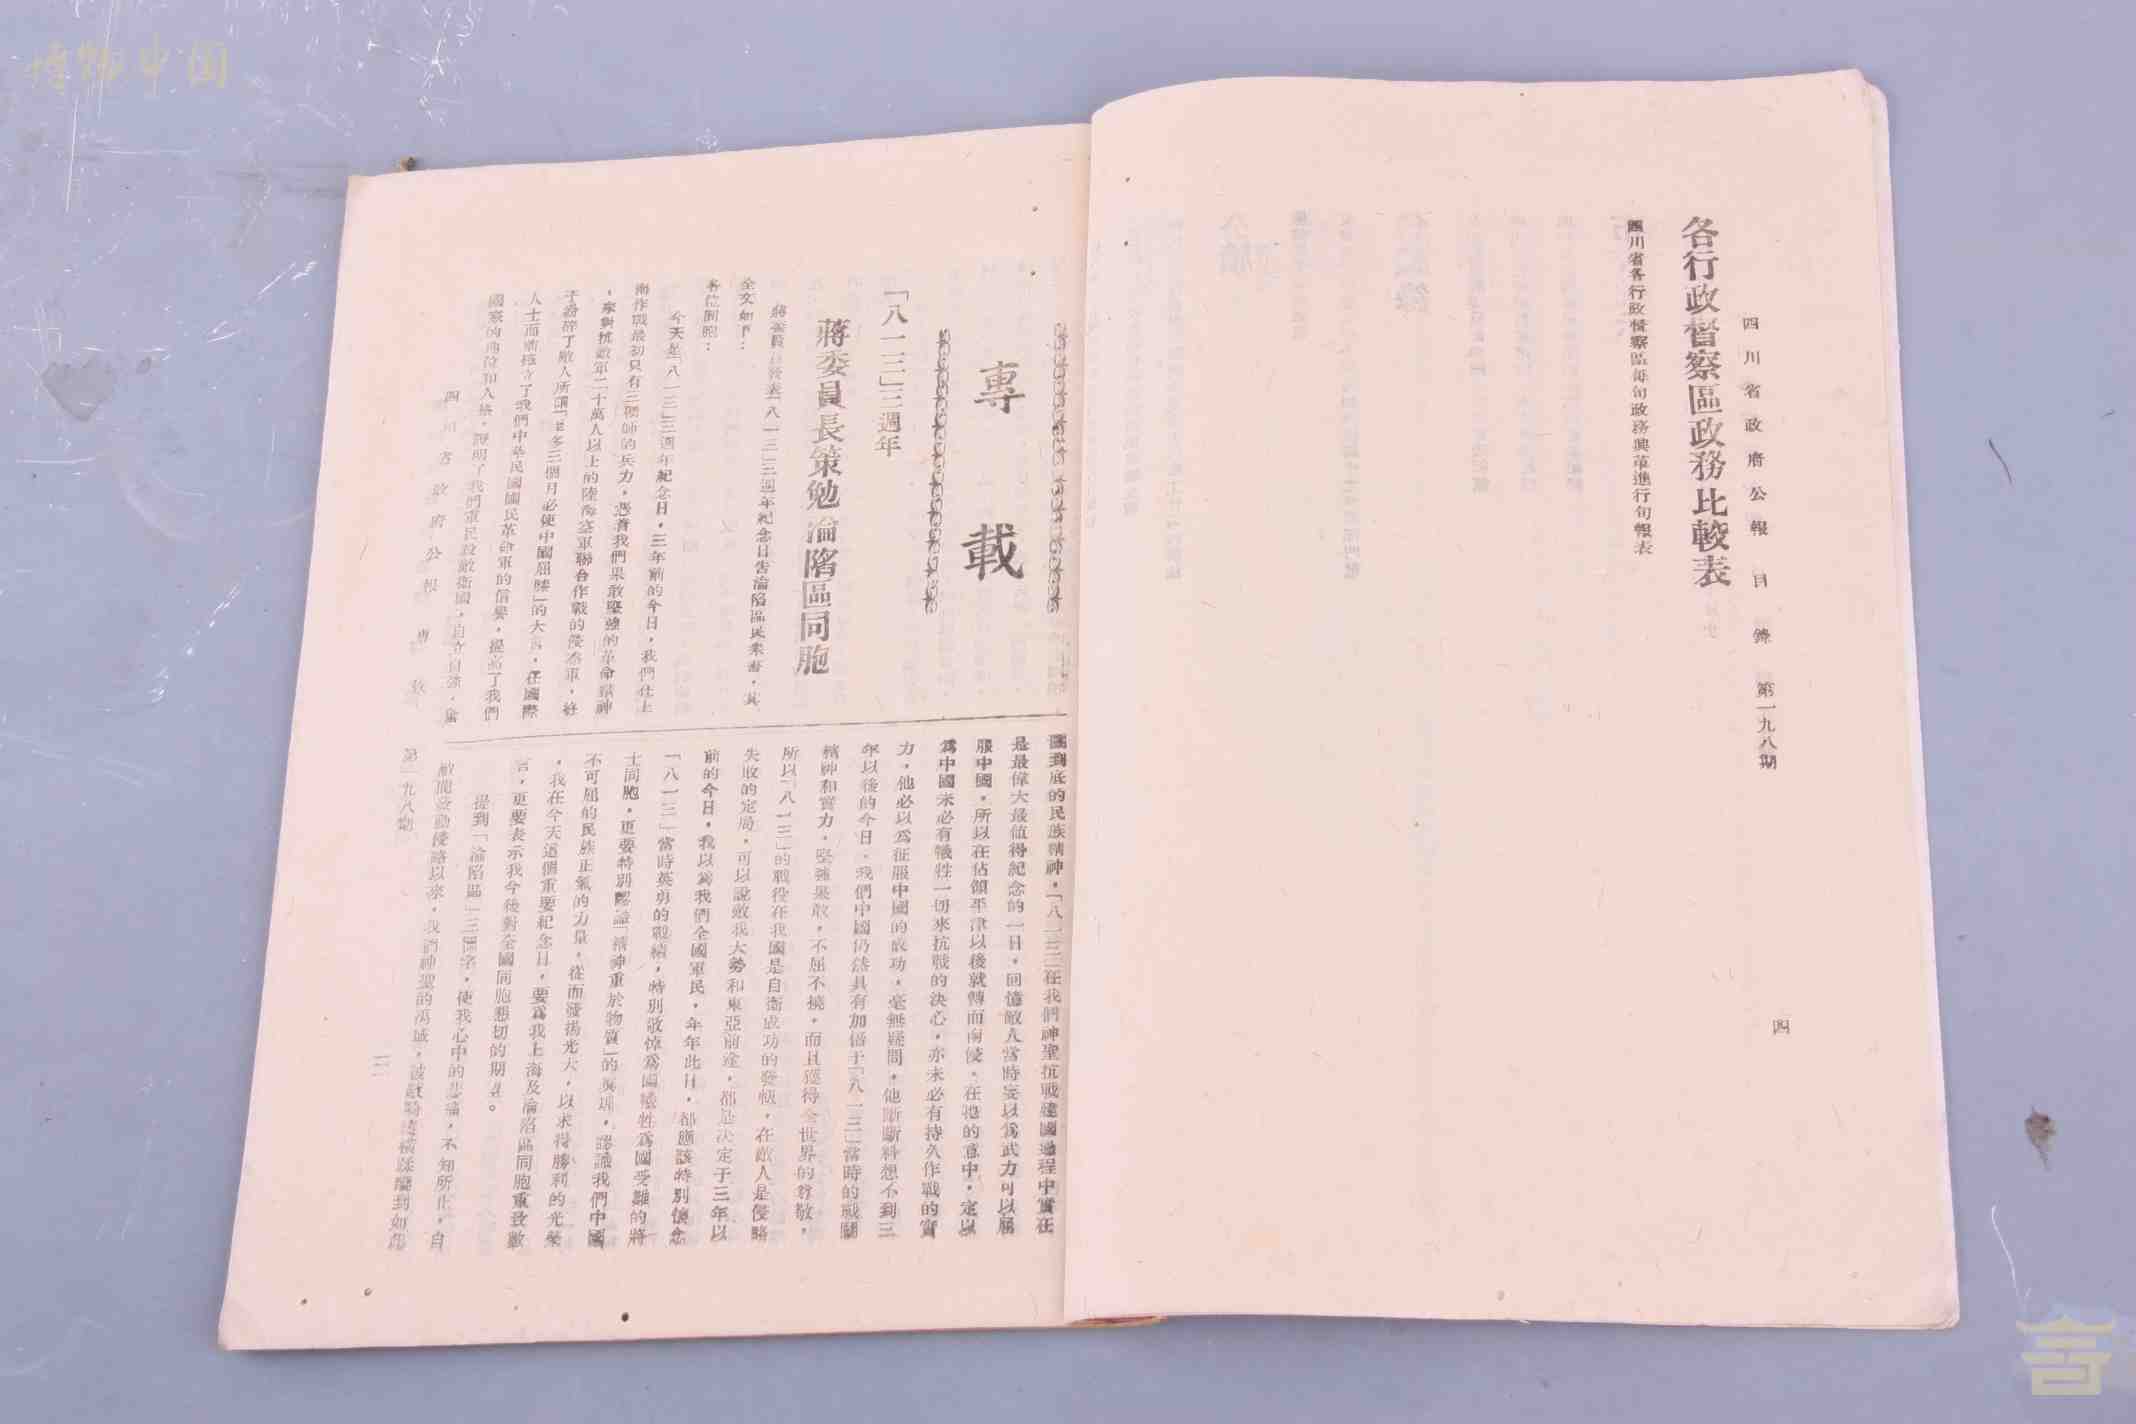 博物中国
四川省政府公報 目錄 第一九八期 四
各行政督察區政務比較表
四川省各行政督察區每旬政務興革進行旬報表
專載
「八一三」三週年
蔣委員長策勉淪陷區同胞
蔣委員長發表「八一三」三週年紀念日告淪陷區民衆書，其
全文如下：
各位同胞：
今天是「八一三」三週年紀念日，三年前的今日，我們在上
海作戰最初只有三個師的兵力，憑着我們果敢堅強的革命精神
，來對抗敵軍二十萬人以上的陸海空軍聯合作戰的侵略軍，終
于粉碎了敵人所謂「至多三個月必使中國屈膝」的大言，在國際
人士面前樹立了我們中華民國國民革命軍的信譽，提高了我們
國家的地位和人格，證明了我們軍民殺敵衛國，自立自強，奮
鬪到底的民族精神，「八一三」在我們神聖抗戰建國過程中實在
是最偉大最值得紀念的一日，回憶敵人當時妄以爲武力可以屈
服中國，所以在佔領平津以後就轉而南侵，在他的意中，定以
爲中國未必有犧牲一切來抗戰的決心，亦未必有持久作戰的實
力，他必以爲征服中國的成功，毫無疑問，他斷斷料想不到三
年以後的今日，我們中國仍然具有加倍于「八一三」當時的戰鬪
精神和實力，堅強果敢，不屈不撓，而且獲得全世界的尊敬，
所以「八一三」的戰役在我國是自衛成功的發軔，在敵人是侵略
失敗的定局，可以說敵我大勢和東亞前途，都是決定于三年以
前的今日，我以爲我們全國軍民，年年此日，都應該特別懷念
「八一三」當時英勇的戰績，特別敬悼爲國犧牲爲國受難的將
士同胞，更要特別認識「精神重於物質」的眞理，認識我們中國
不可屈的民族正氣的力量，從而發揚光大，以求得勝利的光榮
，我在今天這個重要紀念日，要爲我上海及淪陷區同胞重致數
言，更要表示我今後對全國同胞懇切的期望。
提到「淪陷區」三個字，使我心中的悲痛，不知所止，自
敵閥發動侵略以來，我們神聖的禹域，被敵騎縱橫蹂躪到如此
四川省政府公報 專載 第一九八期 一